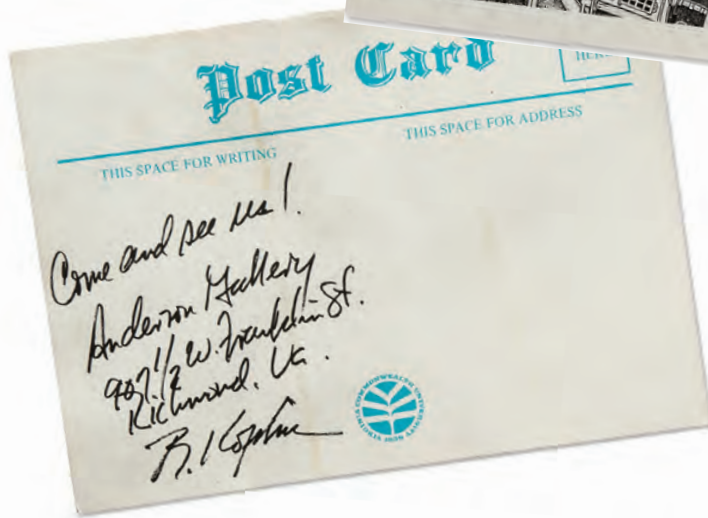 Post Card
HERE
THIS SPACE FOR WRITING
THIS SPACE FOR ADDRESS
Come and see us!
Anderson Gallery
907 1/2 W. Franklin St.
Richmond, Va.
VIRGINIA COMMONWEALTH UNIVERSITY